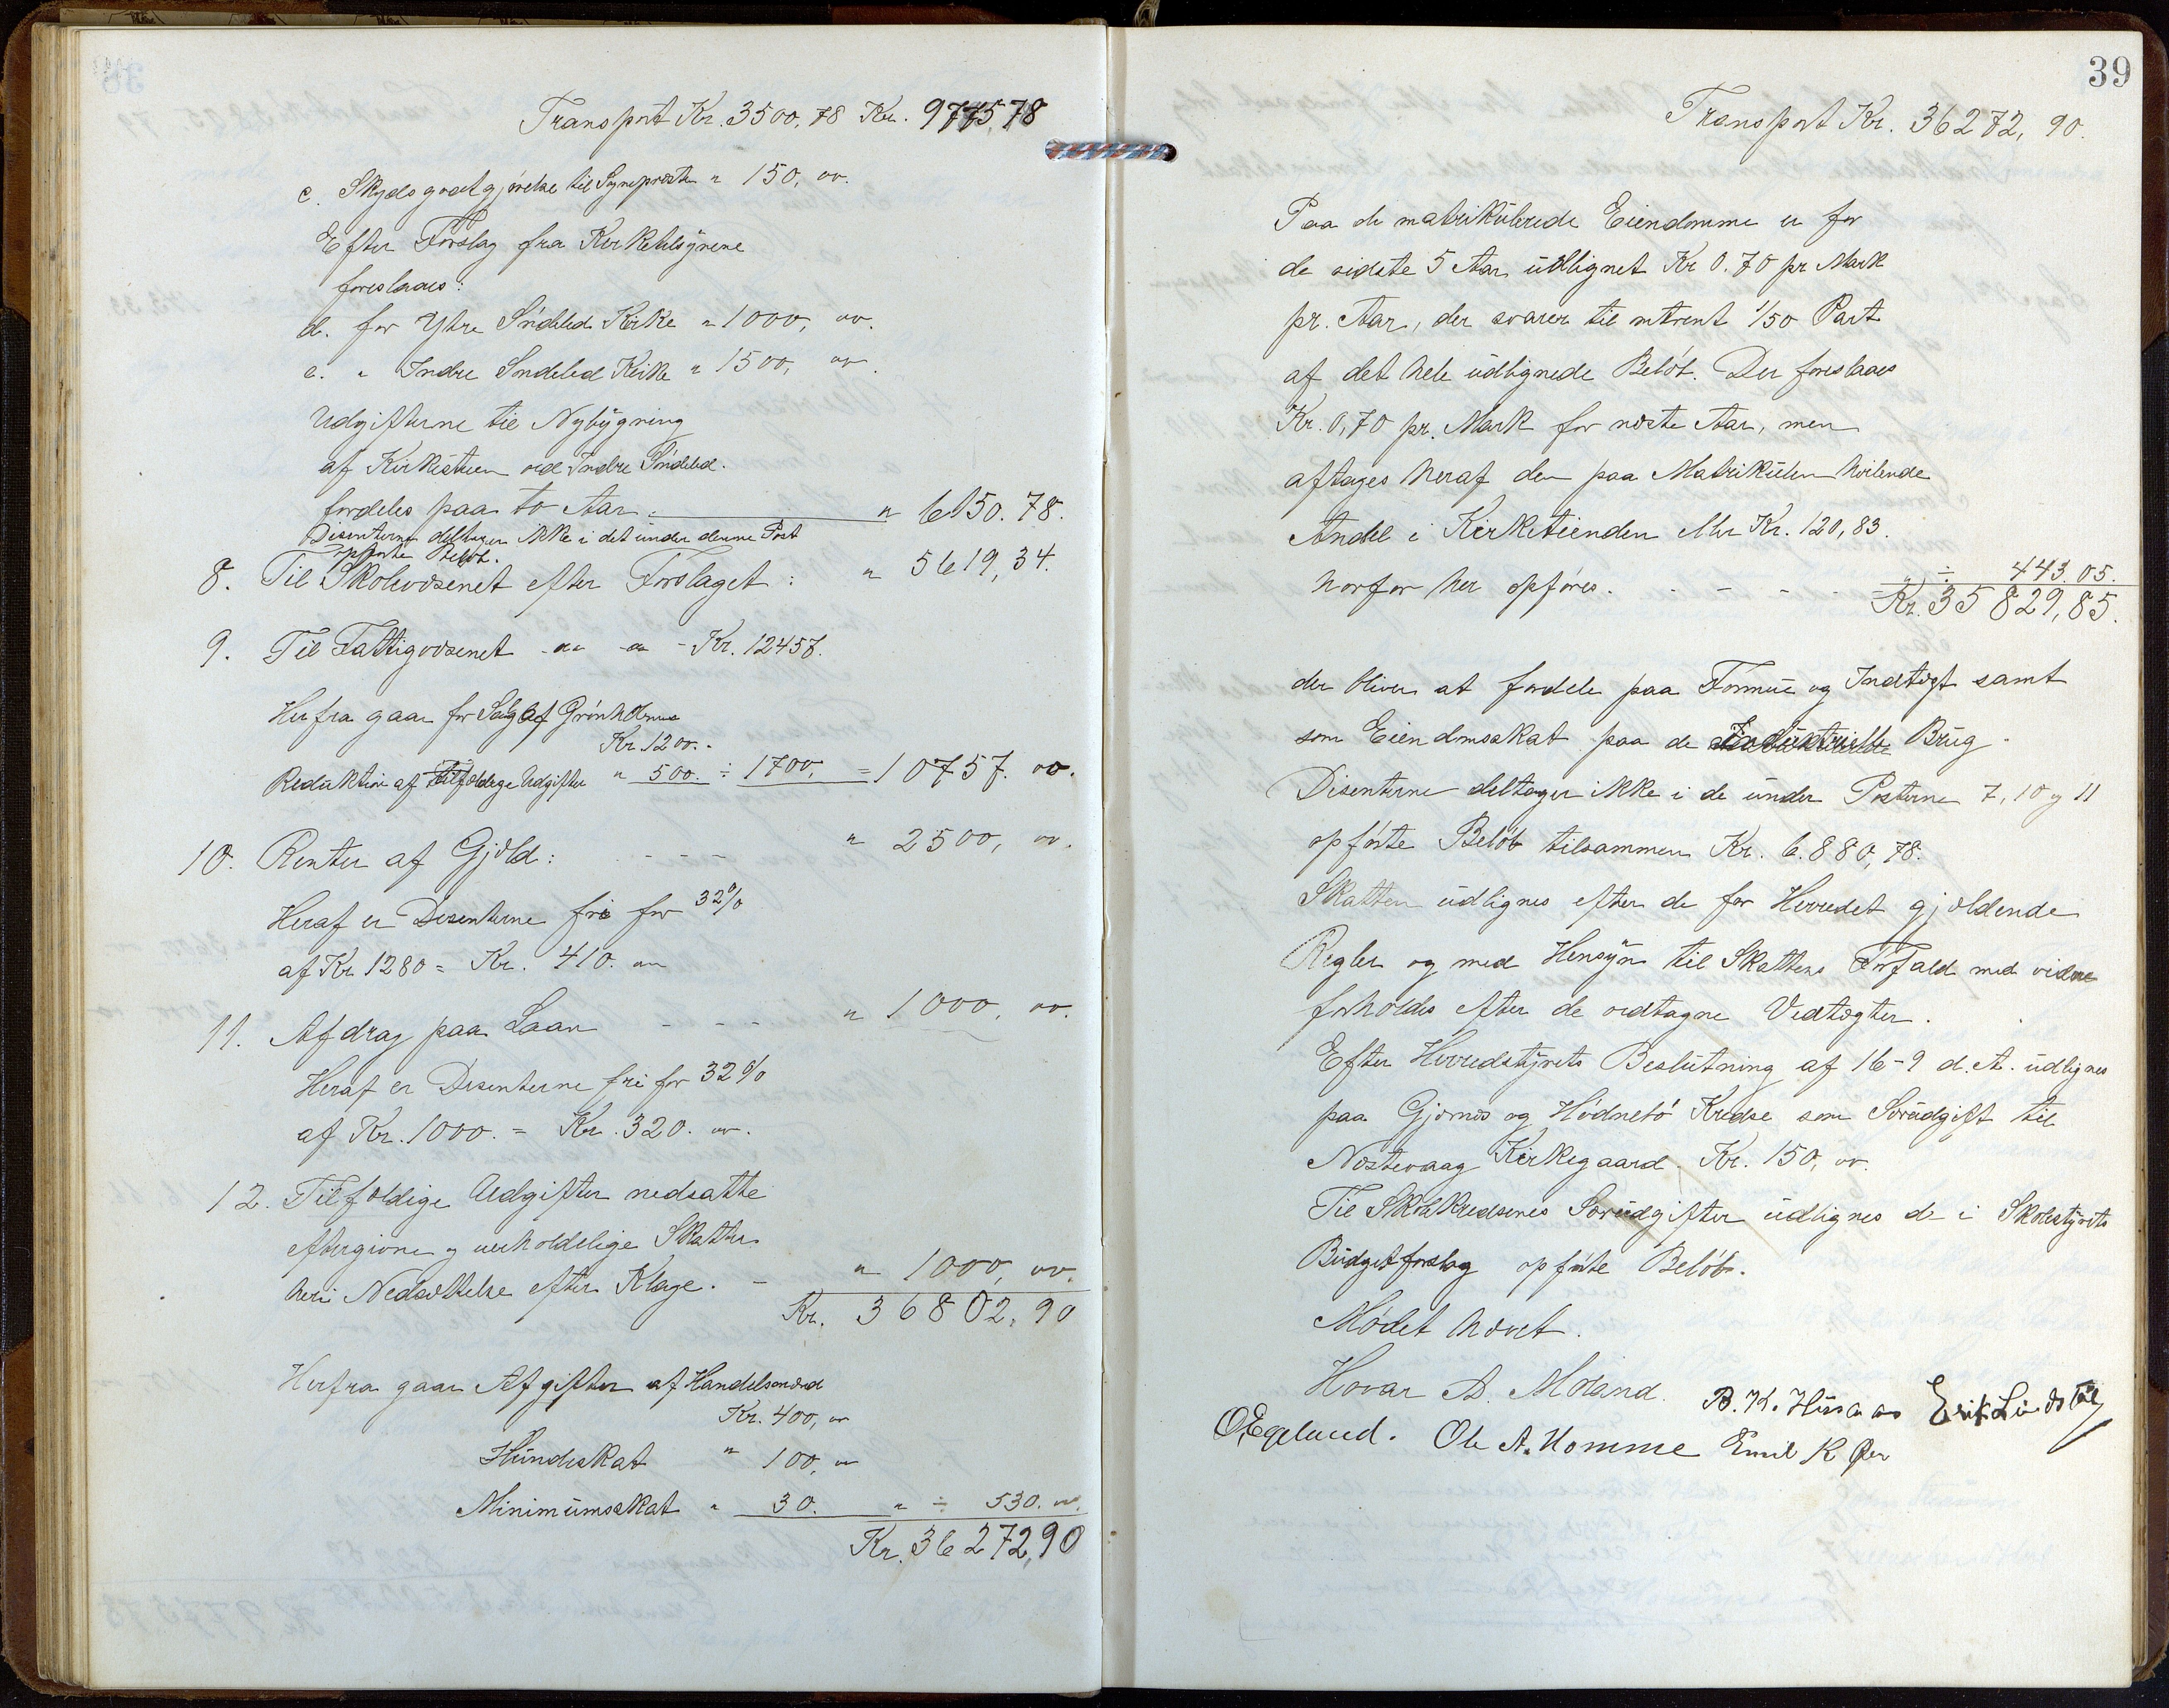 Transport Kr. 3500,78 Kr. 9775,78
c. Skydsgodtgjørelse til Sognepresten " 150, oo.
Efter Forslag fra Kirketilsynene
foreslaaes:
d. for Ytre Søndeled Kirke " 1000, oo.
e. " Indre Søndeled Kirke " 1500, oo.
Udgifterne til Nybygning
af Kirkestuen ved Indre Søndeled.
fordeles paa to Aar. " 6150.78.
Disenterne deltager ikke i det under denne Post
opførte Beløb.
8. Til Skolevæsenet efter Forslaget: " 5619,34.
9. Til Fattigvæsenet -"- -"- Kr. 12457.
Herfra gaar for Salg af Grønholmene
Kr. 1200.-
Reduktion af Tilfældige Udgifter " 500. ÷ 1700, = 10757. oo.
10. Renter af Gjæld: - - - - " 2500, oo.
Heraf er Disenterne fri for 32%
af Kr. 1280 = Kr. 410. oo
11. Afdrag paa Laan - - - - " 1000, oo.
Heraf er Disenterne fri for 32%
af Kr. 1000. = Kr. 320. oo.
12. Tilfældige Udgifter nedsatte
eftergivne og uerholdelige Skatter
heri Nedsættelse efter Klage. - " 1000, oo.
Kr. 36802,90
Herfra gaar Afgifter af Handelsmænd
Kr. 400, oo
Hundeskat " 100, oo
Minimumsskat " 30. " ÷ 530. oo.
Kr. 36272,90
39
Transport Kr. 36272,90.
Paa de matrikulerede Eiendomme er for
de sidste 5 Aar udlignet Kr 0.70 pr Mark
pr. Aar, der svarer til omtrent 1/50 Part
af det hele udlignede Beløb. Der foreslaaes
Kr. 0,70 pr. Mark for næste Aar, men
aftages heraf den paa Matrikulen hvilende
Andel i Kirketienden eller Kr. 120,83.
hvorfor her opføres. - - - - " ÷ 443.05.
Kr. 35829,85.
der bliver at fordele paa Formue og Indtægt samt
som Eiendomsskat paa de Industrielle Brug.
Disenterne deltager ikke i de under Posterne 7, 10 og 11
opførte Beløb tilsammen Kr. 6.880,78.
Skatten udlignes efter de for Herredet gjældende
Regler og med Hensyn til Skattens Forfald med videre
forholdes efter de vedtagne Vedtægter.
Efter Herredstyrets Beslutning af 16-9 d. A. udlignes
paa Gjernes og Hødnebø Kredse som Særudgift til
Næstevaag Kirkegaard. Kr. 150, oo.
Til Skolekredsenes Særudgifter udlignes de i Skolestyrets
Budgetforslag opførte Beløb.
Mødet hævet.
Hovar A. Moland. B. K. Hissaas Erik Lindstøl
O. Egelund. Ole A. Homme Emil K Øen